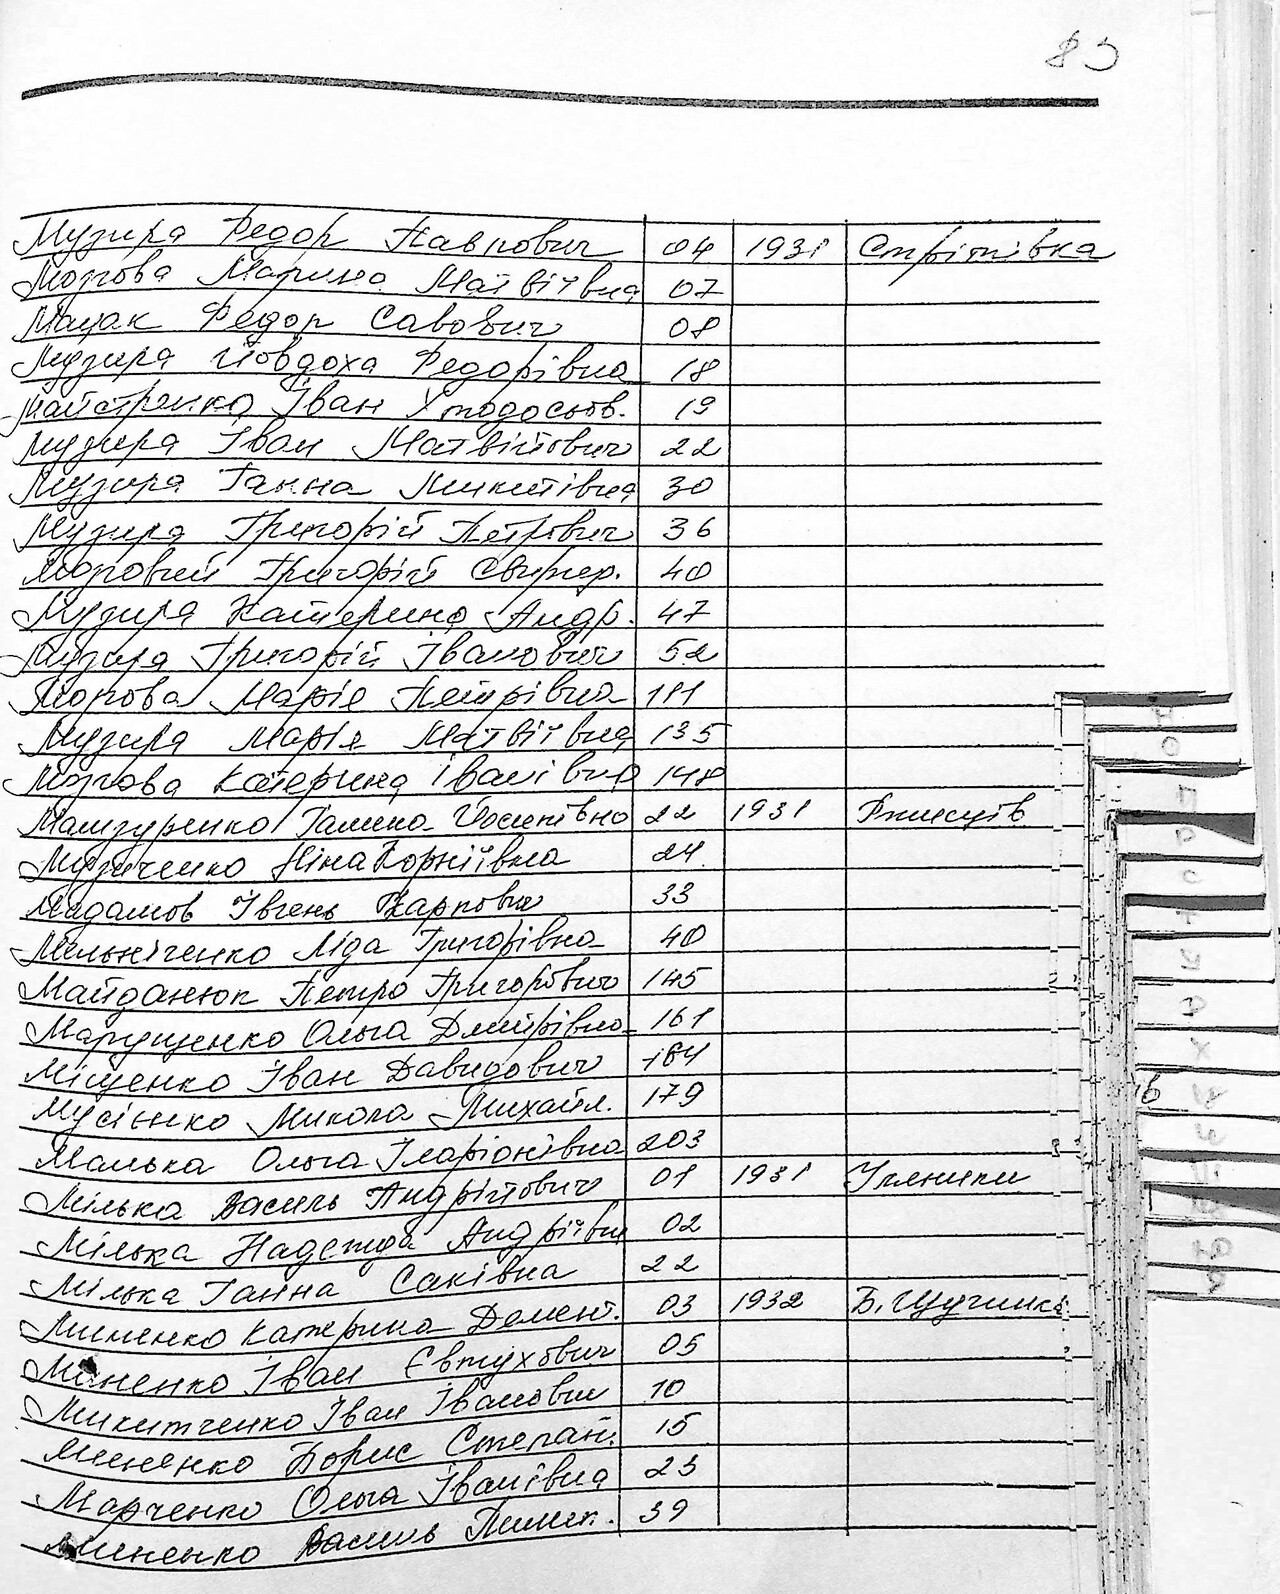 83
Музира Федор Павлович 04 1931 Стрітівка
Мозгова Марина Матвіївна 07
Мацак Федор Савович 08
Музира Йовдоха Федорівна 18
Майстренко Іван Хтодосьов. 19
Музира Іван Матвійович 22
Музира Ганна Микитівна 30
Музира Григорій Петрович 36
Мозговий Григорій Свирид. 40
Музира Катерина Андр. 47
Музира Григорій Іванович 52
Мозгова Марія Петрівна 111
Музира Марія Матвіївна 135
Мозгова Катерина Іванівна 148
Галина Йосипівна 22 1931 Ржищів
Музиченко Ніна Корніївна 24
Мадамов Івгень Карпович 33
Мельніченко Ліда Григорівна 40
Майданюк Петро Григорович 145
Марущенко Ольга Дмитрівна 161
Міщенко Іван Давидович 164
Мусієнко Микола Михайл. 179
Малька Ольга Іларіонівна 203
Мілька Василь Андрійович 01 1931 Уляники
Мілька Надежда Андріївн 02
Мілька Ганна Саківна 22
Миненко Катерина Демент. 03 1932 Б. Щучинка
Миненко Іван Євтухович 05
Микитченко Іван Іванович 10
Миненко Борис Степан. 15
Марченко Ольга Іванівна 23
Миненко Василь Пилип. 39